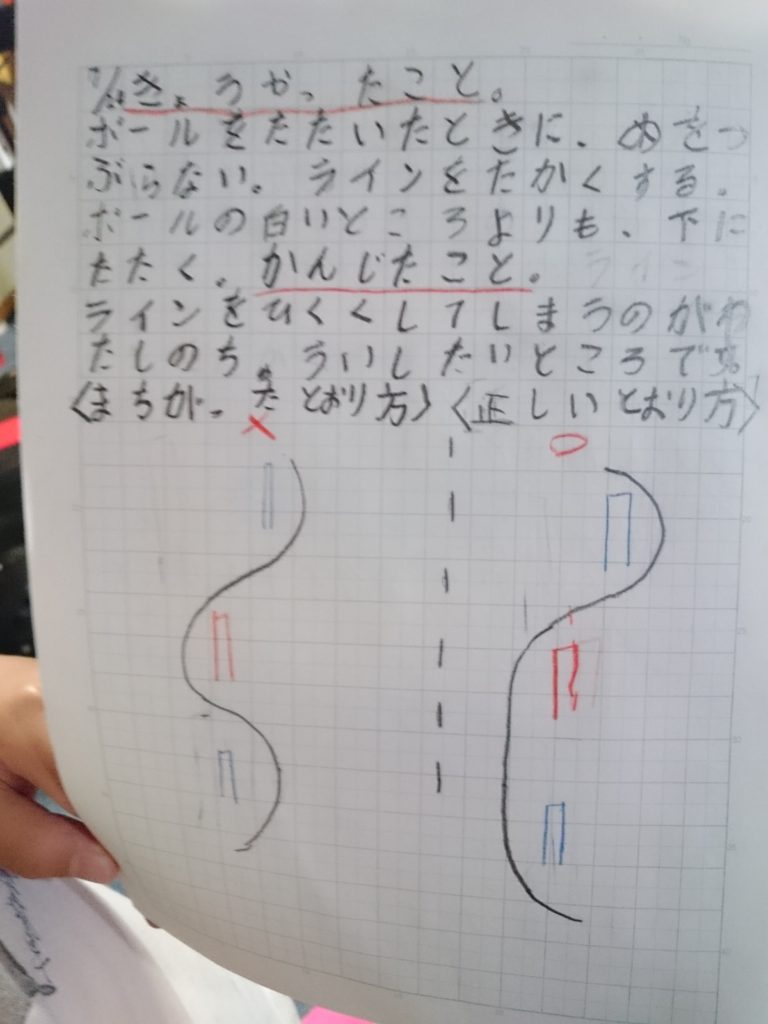 きょうかったこと。
ボールをたたいたときに、めをつ
ぶらない。ラインをたかくする。
ボールの白いところよりも、下に
たたく。かんじたこと。ライン
ラインをひくくしてしまうのがわ
たしのちゅういしたいところです。
〈まちがったとおり方〉〈正しいとおり方〉